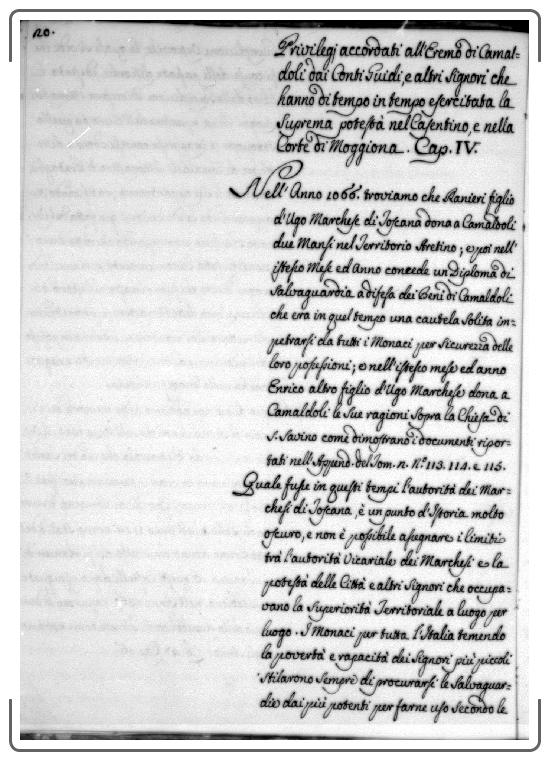 20.
Privilegi accordati all'Eremo di Camal=
doli dai Conti Guidi, e altri Signori che
hanno di tempo in tempo esercitata la
Suprema potestà nel Casentino, e nella
Corte di Moggiona. Cap. IV.
Nell'Anno 1066. troviamo che Ranieri figlio
d'Ugo Marchese di Toscana dona a Camaldoli
due Mansi nel Territorio Aretino; e poi nell'
istesso Mese ed Anno concede un Diploma di
Salvaguardia a difesa dei Beni di Camaldoli
che era in quel tempo una cautela Solita im=
petrarsi da tutti i Monaci per Sicurezza delle
loro possessioni; e nell'istesso mese ed anno
Enrico altro figlio d'Ugo Marchese dona a
Camaldoli le Sue ragioni Sopra la Chiesa di
S. Savino come dimostrano i documenti ripor=
tati nell'Append. del Tom. n. N.° 113. 114. e 115.
Quale fusse in questi tempi l'autorità dei Mar=
chesi di Toscana, è un punto d'Istoria molto
oscuro, e non è possibile assegnare i limiti
trà l'autorità Vicariale dei Marchesi e la
potestà delle Città e altri Signori che occupa=
vano la Superiorità Territoriale a luogo per
luogo. I Monaci per tutta l'Italia temendo
la povertà e rapacità dei Signori più piccoli
Stilarono Sempre di procurarsi le Salvaguar=
die dai più potenti per farne uso secondo le